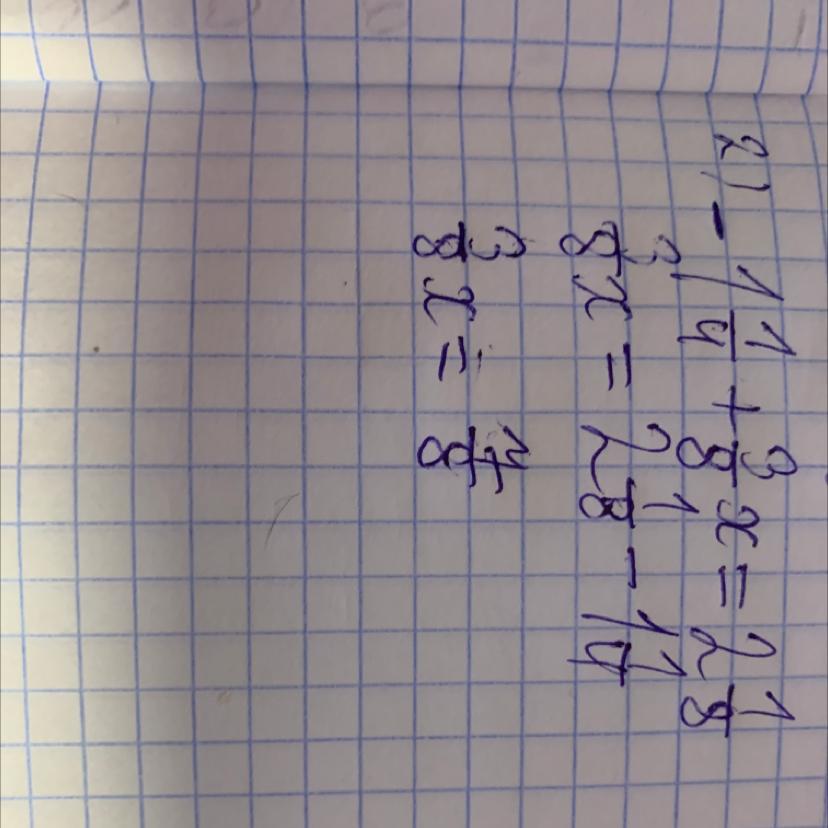 2) - 1 1/4 + 3/8 x = 2 1/8
3/8 x = 2 1/8 - 1 1/4
3/8 x = 7/8